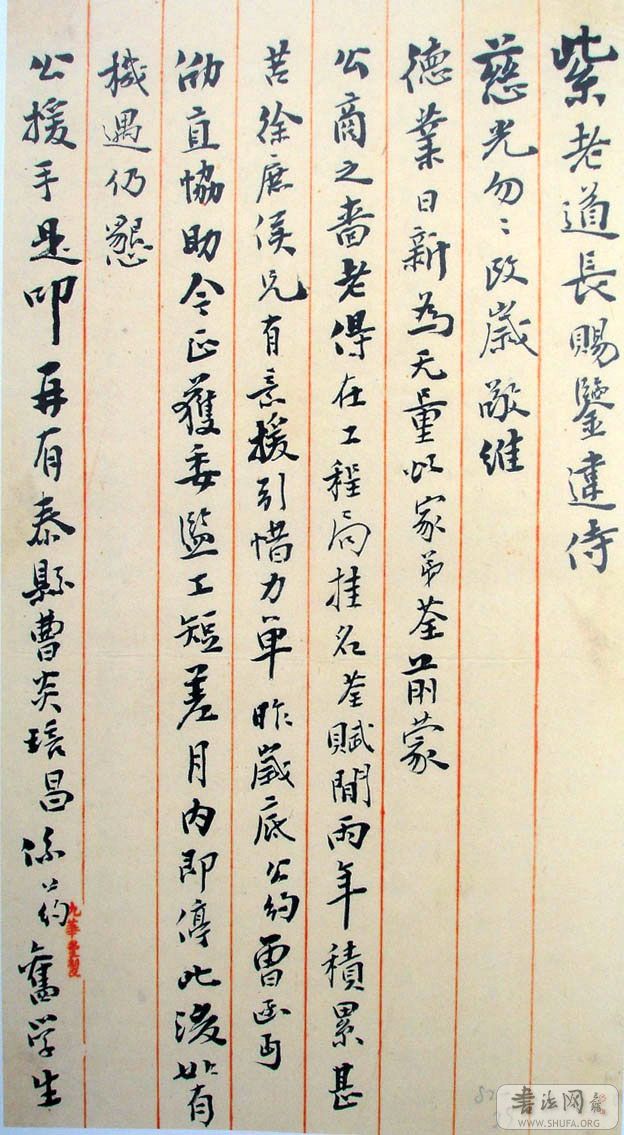 紫老道長賜鑒違侍
慈光勿〻改歲敬維
德業日新為无量以家弟荃前蒙
公商之嗇老得在工程局挂名荃賦閒兩年積累甚
苦徐庶侯兄有意援引惜力單昨歲底公約曹
直協助今正獲委監工短差月内即停此後如有
機遇仍懇
公援手是叩再有泰縣曹炎培昌係舊学生
九華堂製
书法网
WWW.SHUFA.ORG